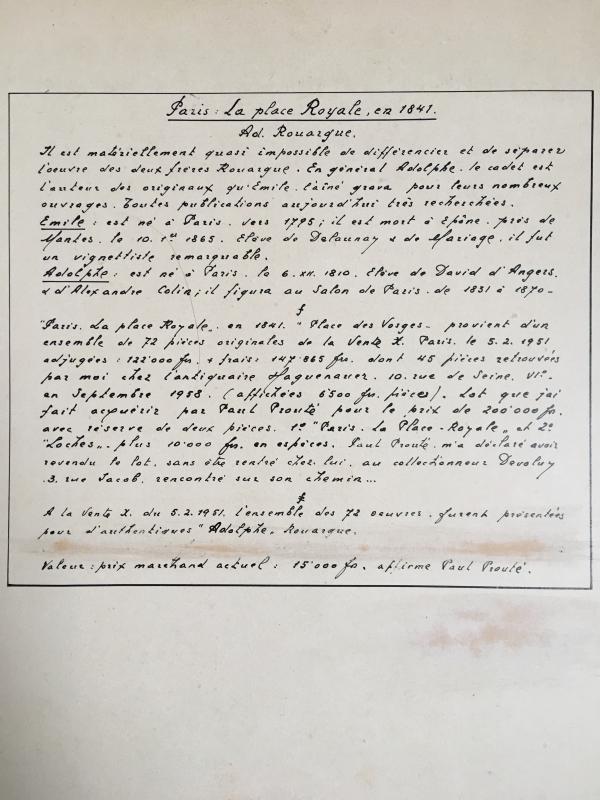 Paris : La place Royale, en 1841.
Ad. Rouargue.
Il est matériellement quasi impossible de différencier et de séparer
l'oeuvre des deux frères Rouargue. En général Adolphe, le cadet est
l'auteur des originaux qu'Emile, l'aîné grava pour leurs nombreux
ouvrages. Toutes publications aujourd'hui très recherchées.
Emile : est né à Paris vers 1795 ; il est mort à Epône, près de
Mantes, le 10. 1er 1865. Elève de Delaunay & de Mariage, il fut
un vignettiste remarquable.
Adolphe : est né à Paris, le 6. XII. 1810. Elève de David d'Angers,
& d'Alexandre Colin ; il figura au Salon de Paris, de 1831 à 1870-
"Paris. La place Royale„ en 1841. "Place des Vosges- provient d'un
ensemble de 72 pièces originales de la Vente X. Paris, le 5.2.1951
adjugées : 122'000 frs. + frais : 147'865 frs, dont 45 pièces retrouvées
par moi chez l'antiquaire Haguenauer, 10, rue de Seine, VIe-
en Septembre 1958. (affichées 6'500 frs. pièces). Lot que j'ai
fait acquérir par Paul Prouté pour le prix de 200'000 frs.
avec réserve de deux pièces. 1º "Paris. La Place-Royale„ et 2º
"Loches„ plus 10'000 frs. en espèces. Paul Prouté m'a déclaré avoir
revendu le lot, sans être rentré chez lui, au collectionneur Devoluy
.3, rue Jacob, rencontré sur son chemin...
A la Vente X. du 5.2.1951. l'ensemble des 72 oeuvres, furent présentées
pour d'authentiques "Adolphe„ Rouargue.
Valeur : prix marchand actuel : 15'000 frs. affirme Paul Prouté.